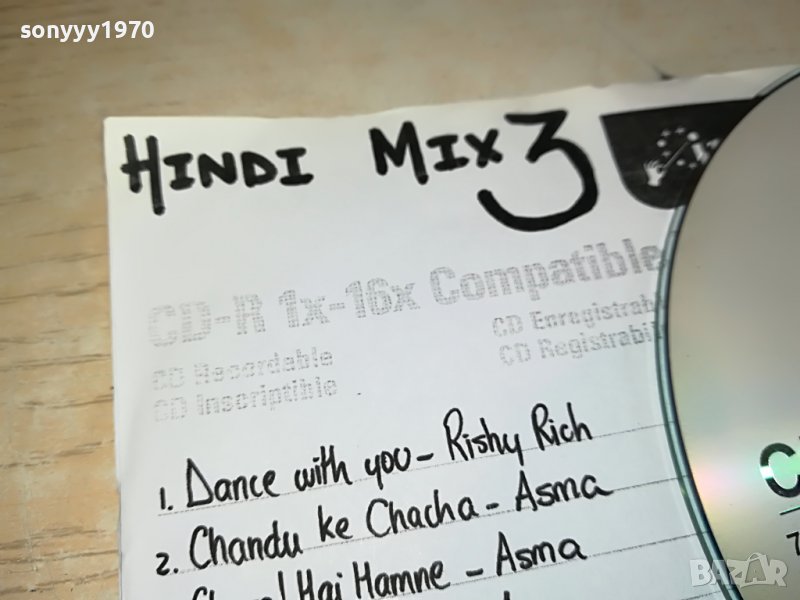 sonyyy1970
HINDI MIX 3
CD-R 1x-16x Compatible
CD Recordable
CD Inscriptible
CD Enregistrab
CD Registrabil
1. Dance with you - Rishy Rich
2. Chandu ke Chacha - Asma
Hai Hamne - Asma
BAZAR